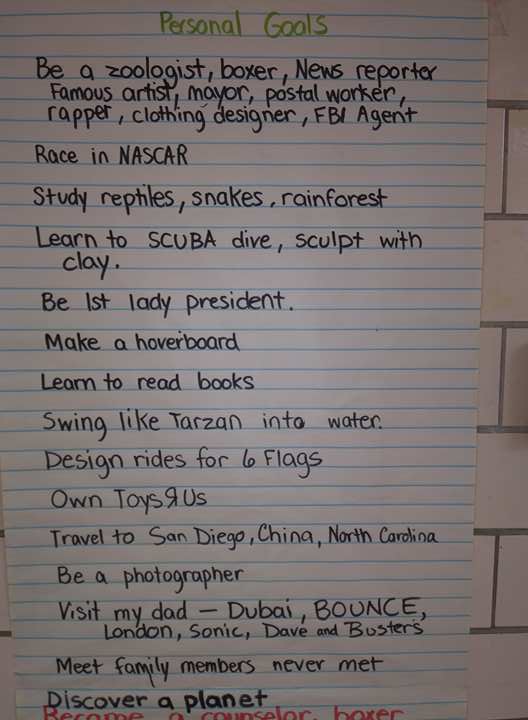 Personal Goals
Be a zoologist, boxer, News reporter
Famous artist, mayor, postal worker,
rapper, clothing designer, FBI Agent
Race in NASCAR
Study reptiles, snakes, rainforest
Learn to SCUBA dive, sculpt with
clay.
Be 1st lady president.
Make a hoverboard
Learn to read books
Swing like Tarzan into water.
Design rides for 6 Flags
Own ToysЯUs
Travel to San Diego, China, North Carolina
Be a photographer
Visit my dad — Dubai, BOUNCE,
London, Sonic, Dave and Busters
Meet family members never met
Discover a planet
Become a counselor, boxer